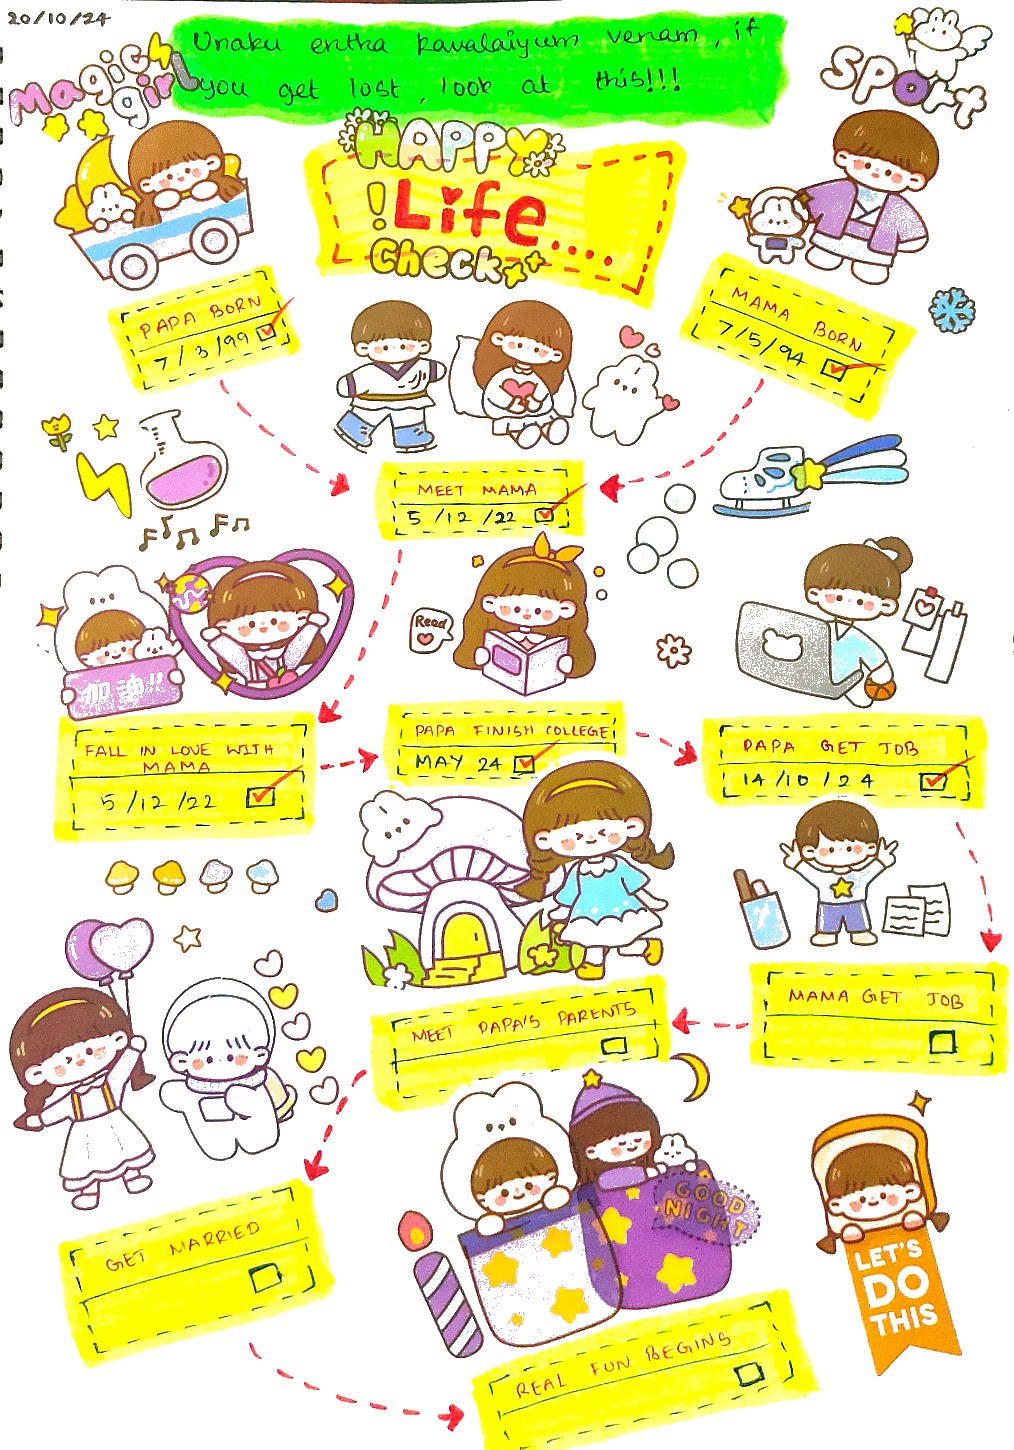 20/10/24
Unaku entha kavalaiyum venam, if
you get lost, look at this!!!
Magic
girl
SPORT
HAPPY
!Life...
Check
PAPA BORN
7/3/99
MAMA BORN
7/5/94
MEET MAMA
5/12/22
Read
加油!!
FALL IN LOVE WITH
MAMA
5/12/22
PAPA FINISH COLLEGE
MAY 24
PAPA GET JOB
14/10/24
MAMA GET JOB
MEET PAPA'S PARENTS
GET MARRIED
GOOD
NIGHT
LET'S
DO
THIS
REAL FUN BEGINS